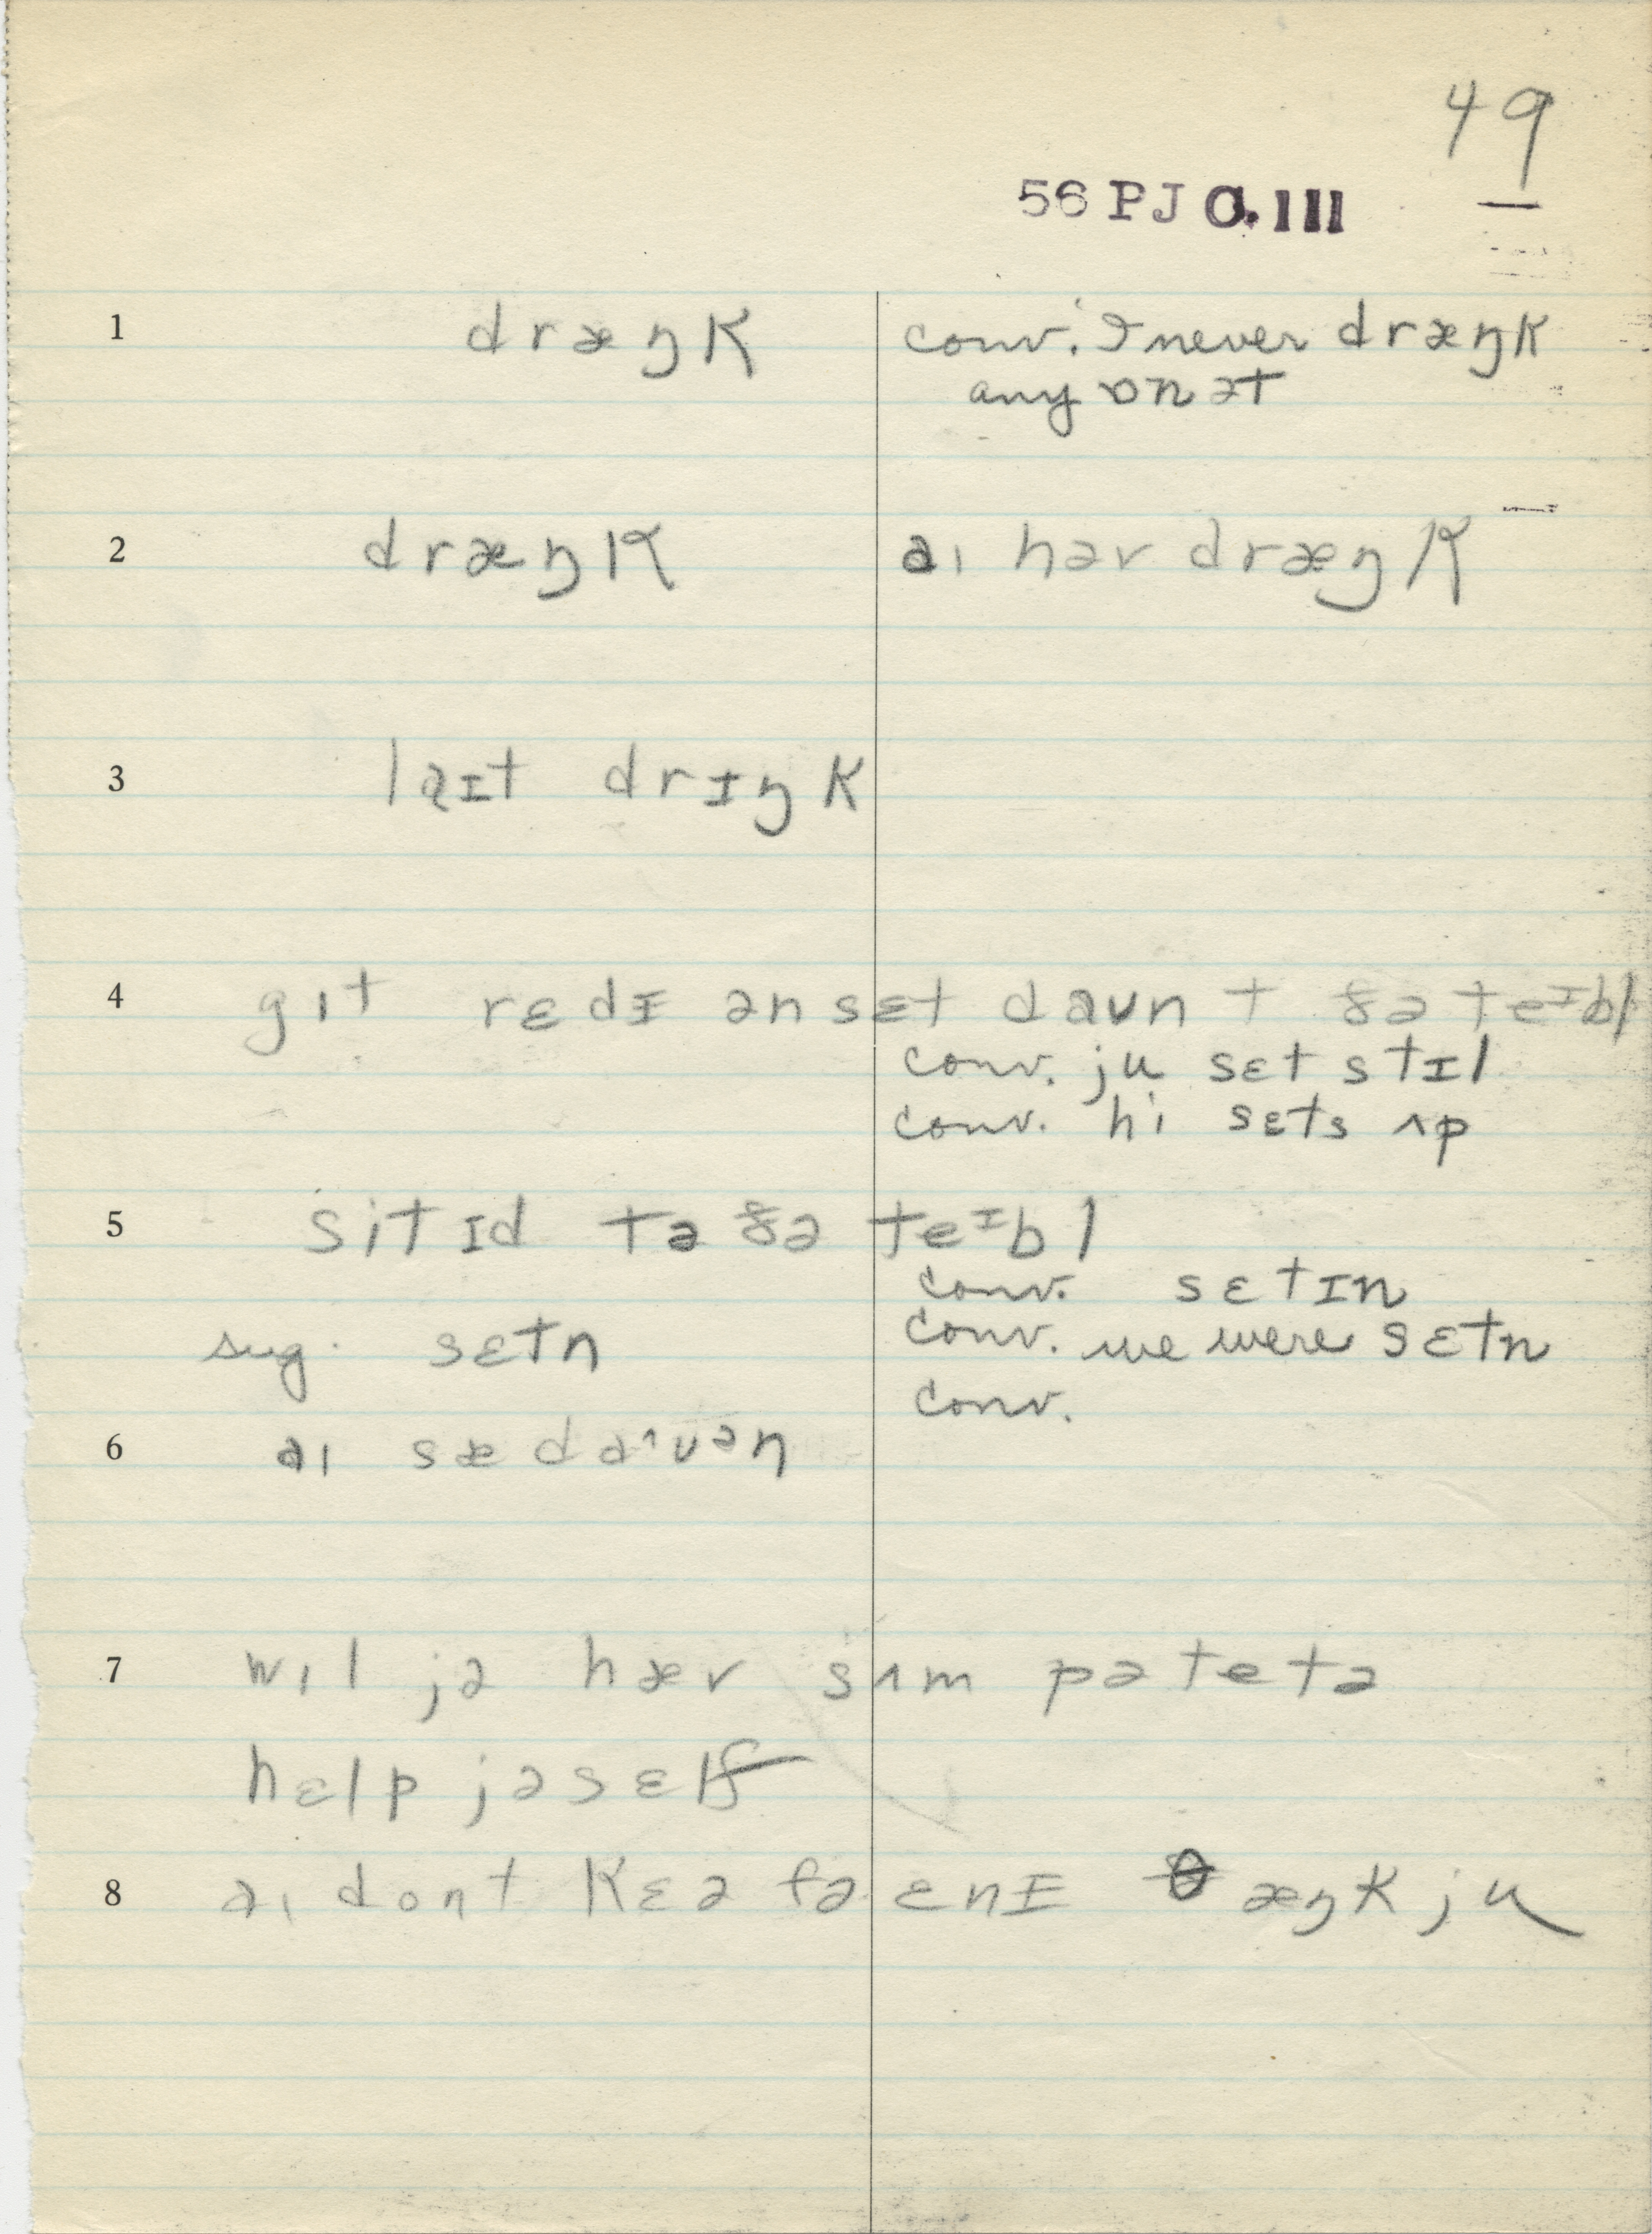 49
56 PJ O.III
1 dræŋk conv. I never dræŋk
any ɒn ət
2 dræŋk aɪ həv dræŋk
3 laɪt drɪŋk
4 gɪt rɛdɪ ən sɛt daʊn t ðə teᴵbl
conv. ju sɛt stɪl
conv. hi sɛts ʌp
5 sitɪd tə ðə teᴵbl
conv. sɛtɪn
sug. sɛtn conv. we were sɛtn
conv.
6 aɪ sæ daʌʊən
7 wɪl jə hæv sʌm pəteɪtə
hɛlp jəsɛlf
8 aɪ dont kɛə fə ɛnɪ θæŋk ju